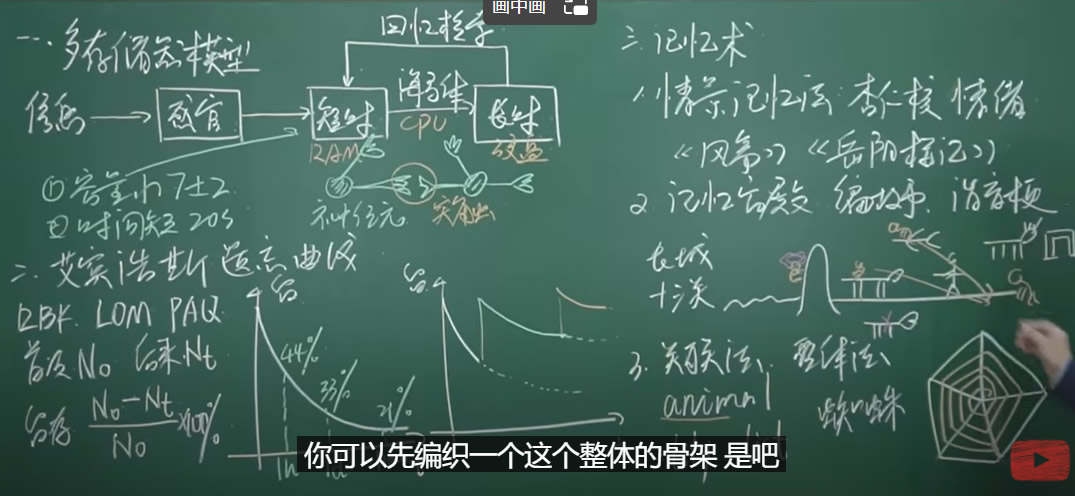 画中画
一、多存储记忆模型
回忆检索
信息 感官 短时 海马体 长时
RAM CPU 硬盘
① 容量小 7±2
② 时间短 20s
神经元 突触
二、艾宾浩斯遗忘曲线
RBK LOM PAQ
首次 N₀ 后来 Nt
留存 (N₀-Nt)/N₀ ×100%
留
44%
33%
21%
1h
留
三、记忆术
1、情景记忆法 杏仁核 情绪
《风筝》《岳阳楼记》
2、记忆宫殿 编故事、谐音梗
长城
十二关
3、关联法、整体法
animal 蜘蛛
你可以先编织一个这个整体的骨架 是吧